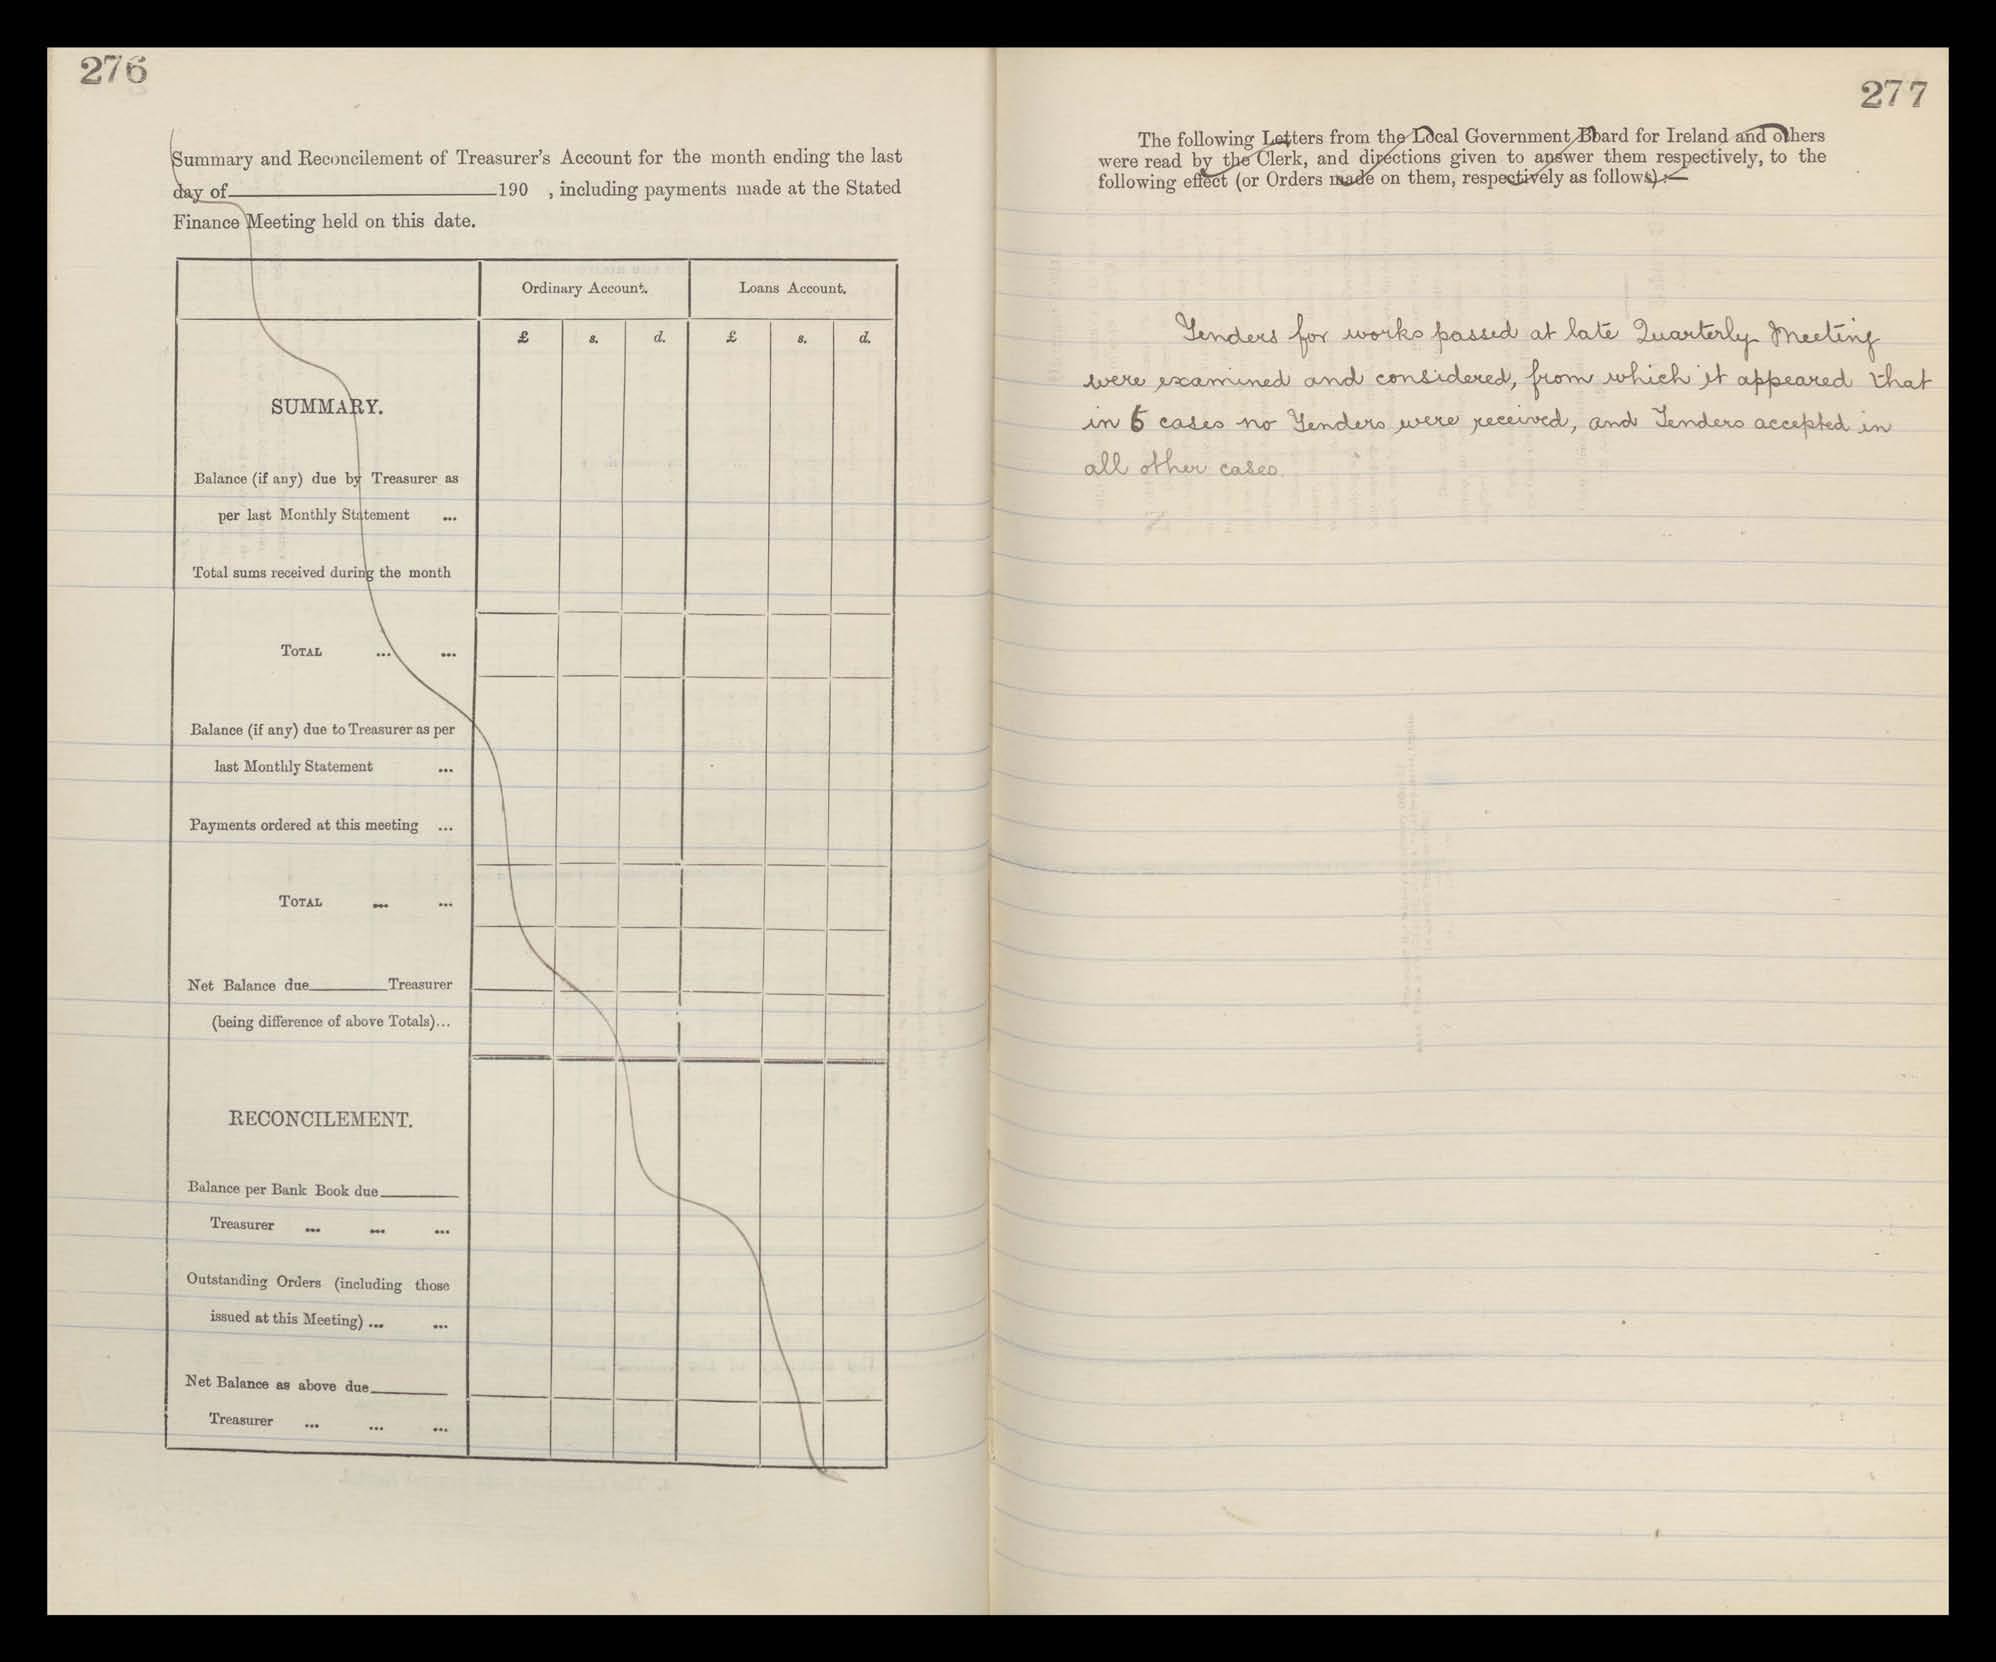 276
Summary and Reconcilement of Treasurer's Account for the month ending the last
day of 190 , including payments made at the Stated
Finance Meeting held on this date.
Ordinary Account. Loans Account.
£ s. d. £ s. d.
SUMMARY.
Balance (if any) due by Treasurer as
per last Monthly Statement ...
Total sums received during the month
TOTAL ... ...
Balance (if any) due to Treasurer as per
last Monthly Statement ...
Payments ordered at this meeting ...
TOTAL ... ...
Net Balance due Treasurer
(being difference of above Totals)...
RECONCILEMENT.
Balance per Bank Book due
Treasurer ... ... ...
Outstanding Orders (including those
issued at this Meeting) ... ...
Net Balance as above due
Treasurer ... ... ...
277
The following Letters from the Local Government Board for Ireland and others
were read by the Clerk, and directions given to answer them respectively, to the
following effect (or Orders made on them, respectively as follows) :—
Tenders for works passed at late Quarterly Meeting
were examined and considered, from which it appeared that
in 6 cases no Tenders were received, and Tenders accepted in
all other cases.